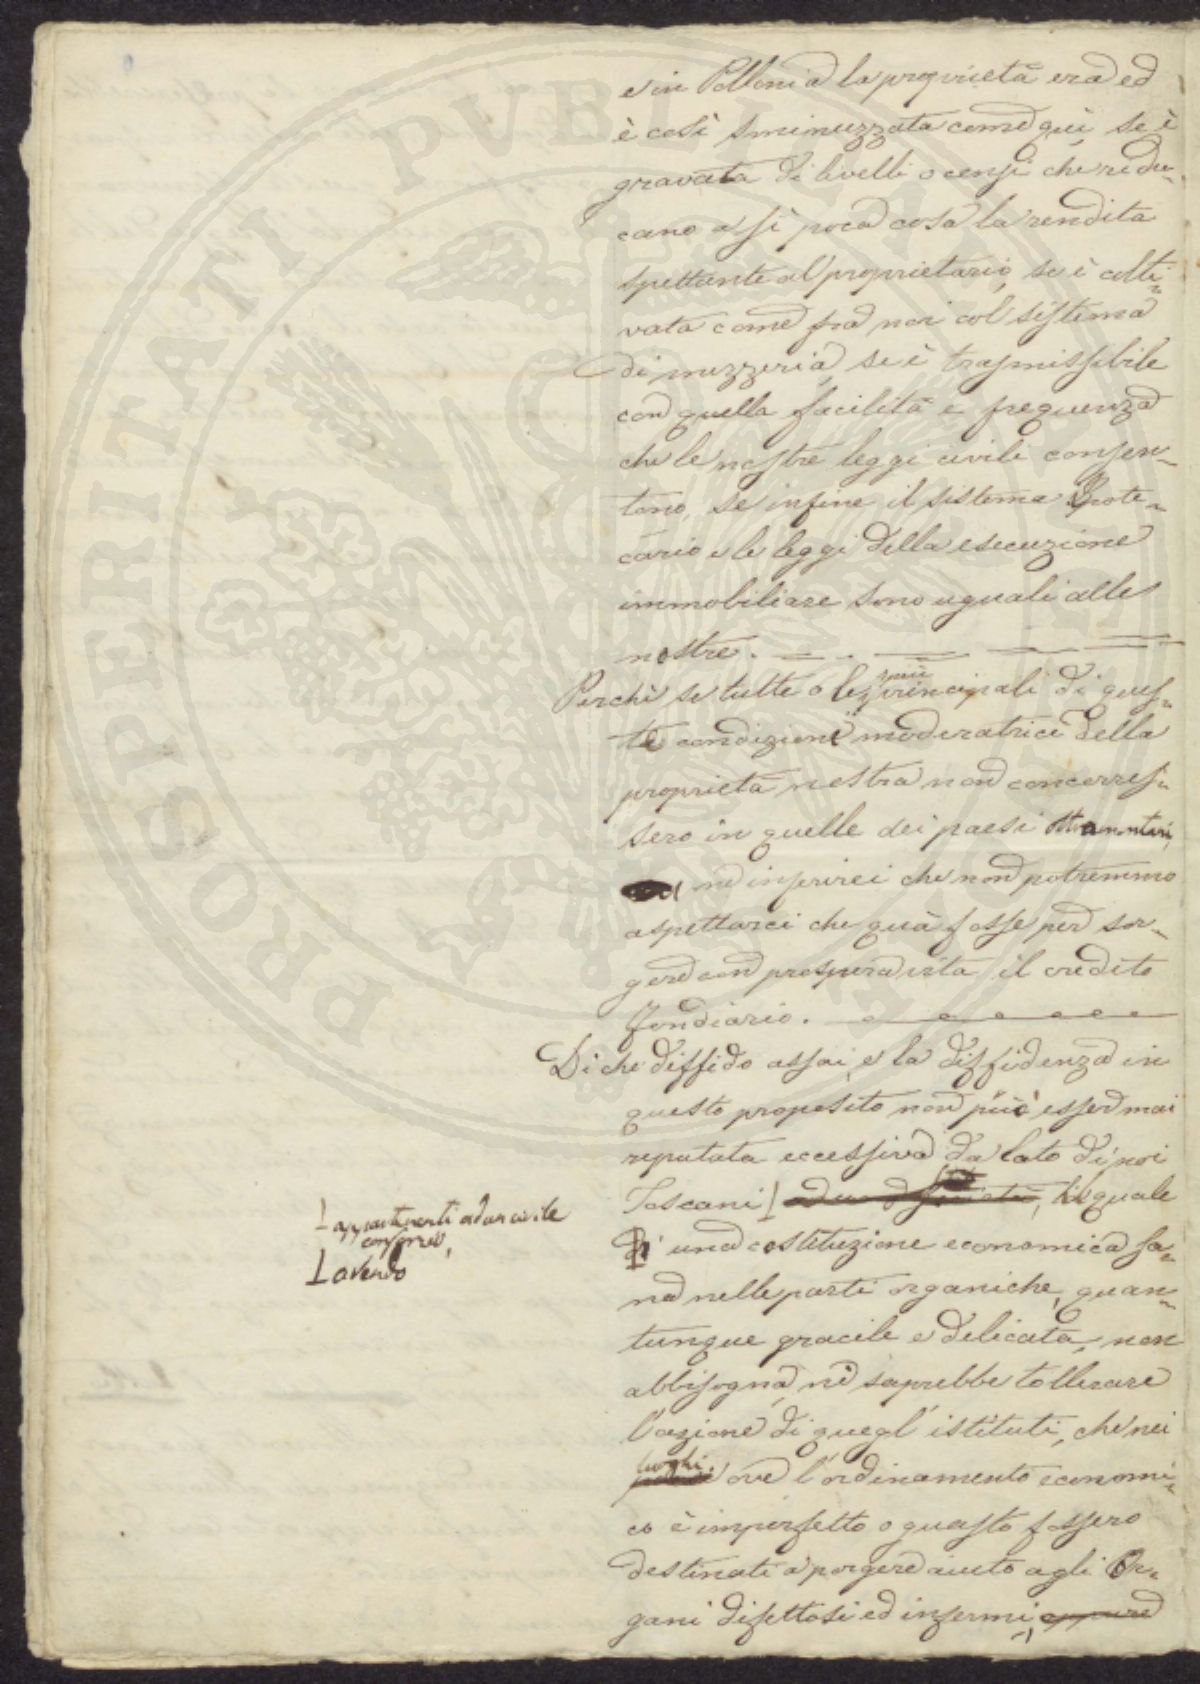 e in Pollonia la proprietà era ed
è così sminuzzata come quì, se è
gravata di livelli o censi che ridu-
cano a sì poca cosa la rendita
spettante al proprietario, se è colti-
vata come fra noi col sistema
di mezzeria, se è trasmissibile
con quella facilità e frequenza
che le nostre leggi civili consen-
tono, se infine il sistema Ipote-
cario e le leggi della esecuzione
immobiliare sono uguali alle
nostre.
Perchè se tutte o le più principali di ques-
te condizioni moderatrici della
proprietà nostra non concorres-
sero in quelle dei paesi oltramontani,
ne inferirei che non potremmo
aspettarci che quà fosse per sor-
gere con prospera vita il credito
fondiario.
Di che diffido assai, e la diffidenza in
questo proposito non può esser mai
reputata eccessiva da lato di noi
Toscani, la quale
di una costituzione economica sa-
na nelle parti organiche, quan-
tunque gracile e delicata, non
abbisogna, nè saprebbe tollerare
l'azione di quegl'istituti, che nei
luoghi ove l'ordinamento economi-
co è imperfetto o guasto fossero
destinati a porgere aiuto agli Or-
gani difettosi ed infermi, oppure
appartenenti ad un civile
consorzio,
avendo
PROSPERITATI PVBLICAE